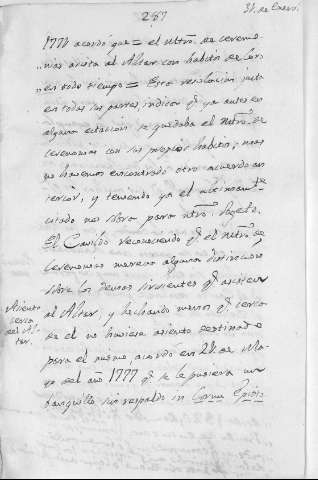 287
31. de Enero.
1771 acordó que = el Mtrō. de ceremo-
nias asista al Altar con habito de Coro
en todo tiempo = Esta resolucion justa
en todas sus partes indica q.e ya antes en
alguna estacion se quedaba el Mtrō. de
ceremonias con sus propios habitos; mas
no havemos encontrado otro acuerdo an-
terior, y teniendo ya el ultimam.te
citado nos sobra para ntrō.
El Cavildo reconociendo q.e el Mtrō. de
ceremonias merece alguna distincion
sobre los demas sirvientes q.e asisten
al Altar, y hechando menos q.e cerca
de el no huviera asiento destinado
para el mismo acordó en 24. de Ma-
yo del año 1777 q.e se le pusiera un
banquillo sin respaldo in Cornu Epist.
Asiento
cerca
del Al-
tar.